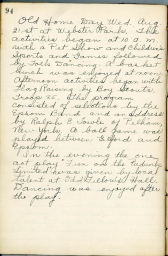 94
Old Home Day Wed. Aug.
21st at Webster Park. The
activities began at 10 A.M.
with a Pet Show and Children's
Sports and Games followed
by Folk Dancing. A basket
lunch was enjoyed at noon.
Afternoon activities began with
Flag Raising by Boy Scouts
Troop 21. The program
consisted of selections by the
Epsom Band and an address
by Ralph E. Towle of Pelham
New York. A ball game was
played between Blood and
Epsom.
In the evening the one
act play "I'm on the
Limited" was given by local
talent at Odd Fellows Hall.
Dancing was enjoyed after
the play.